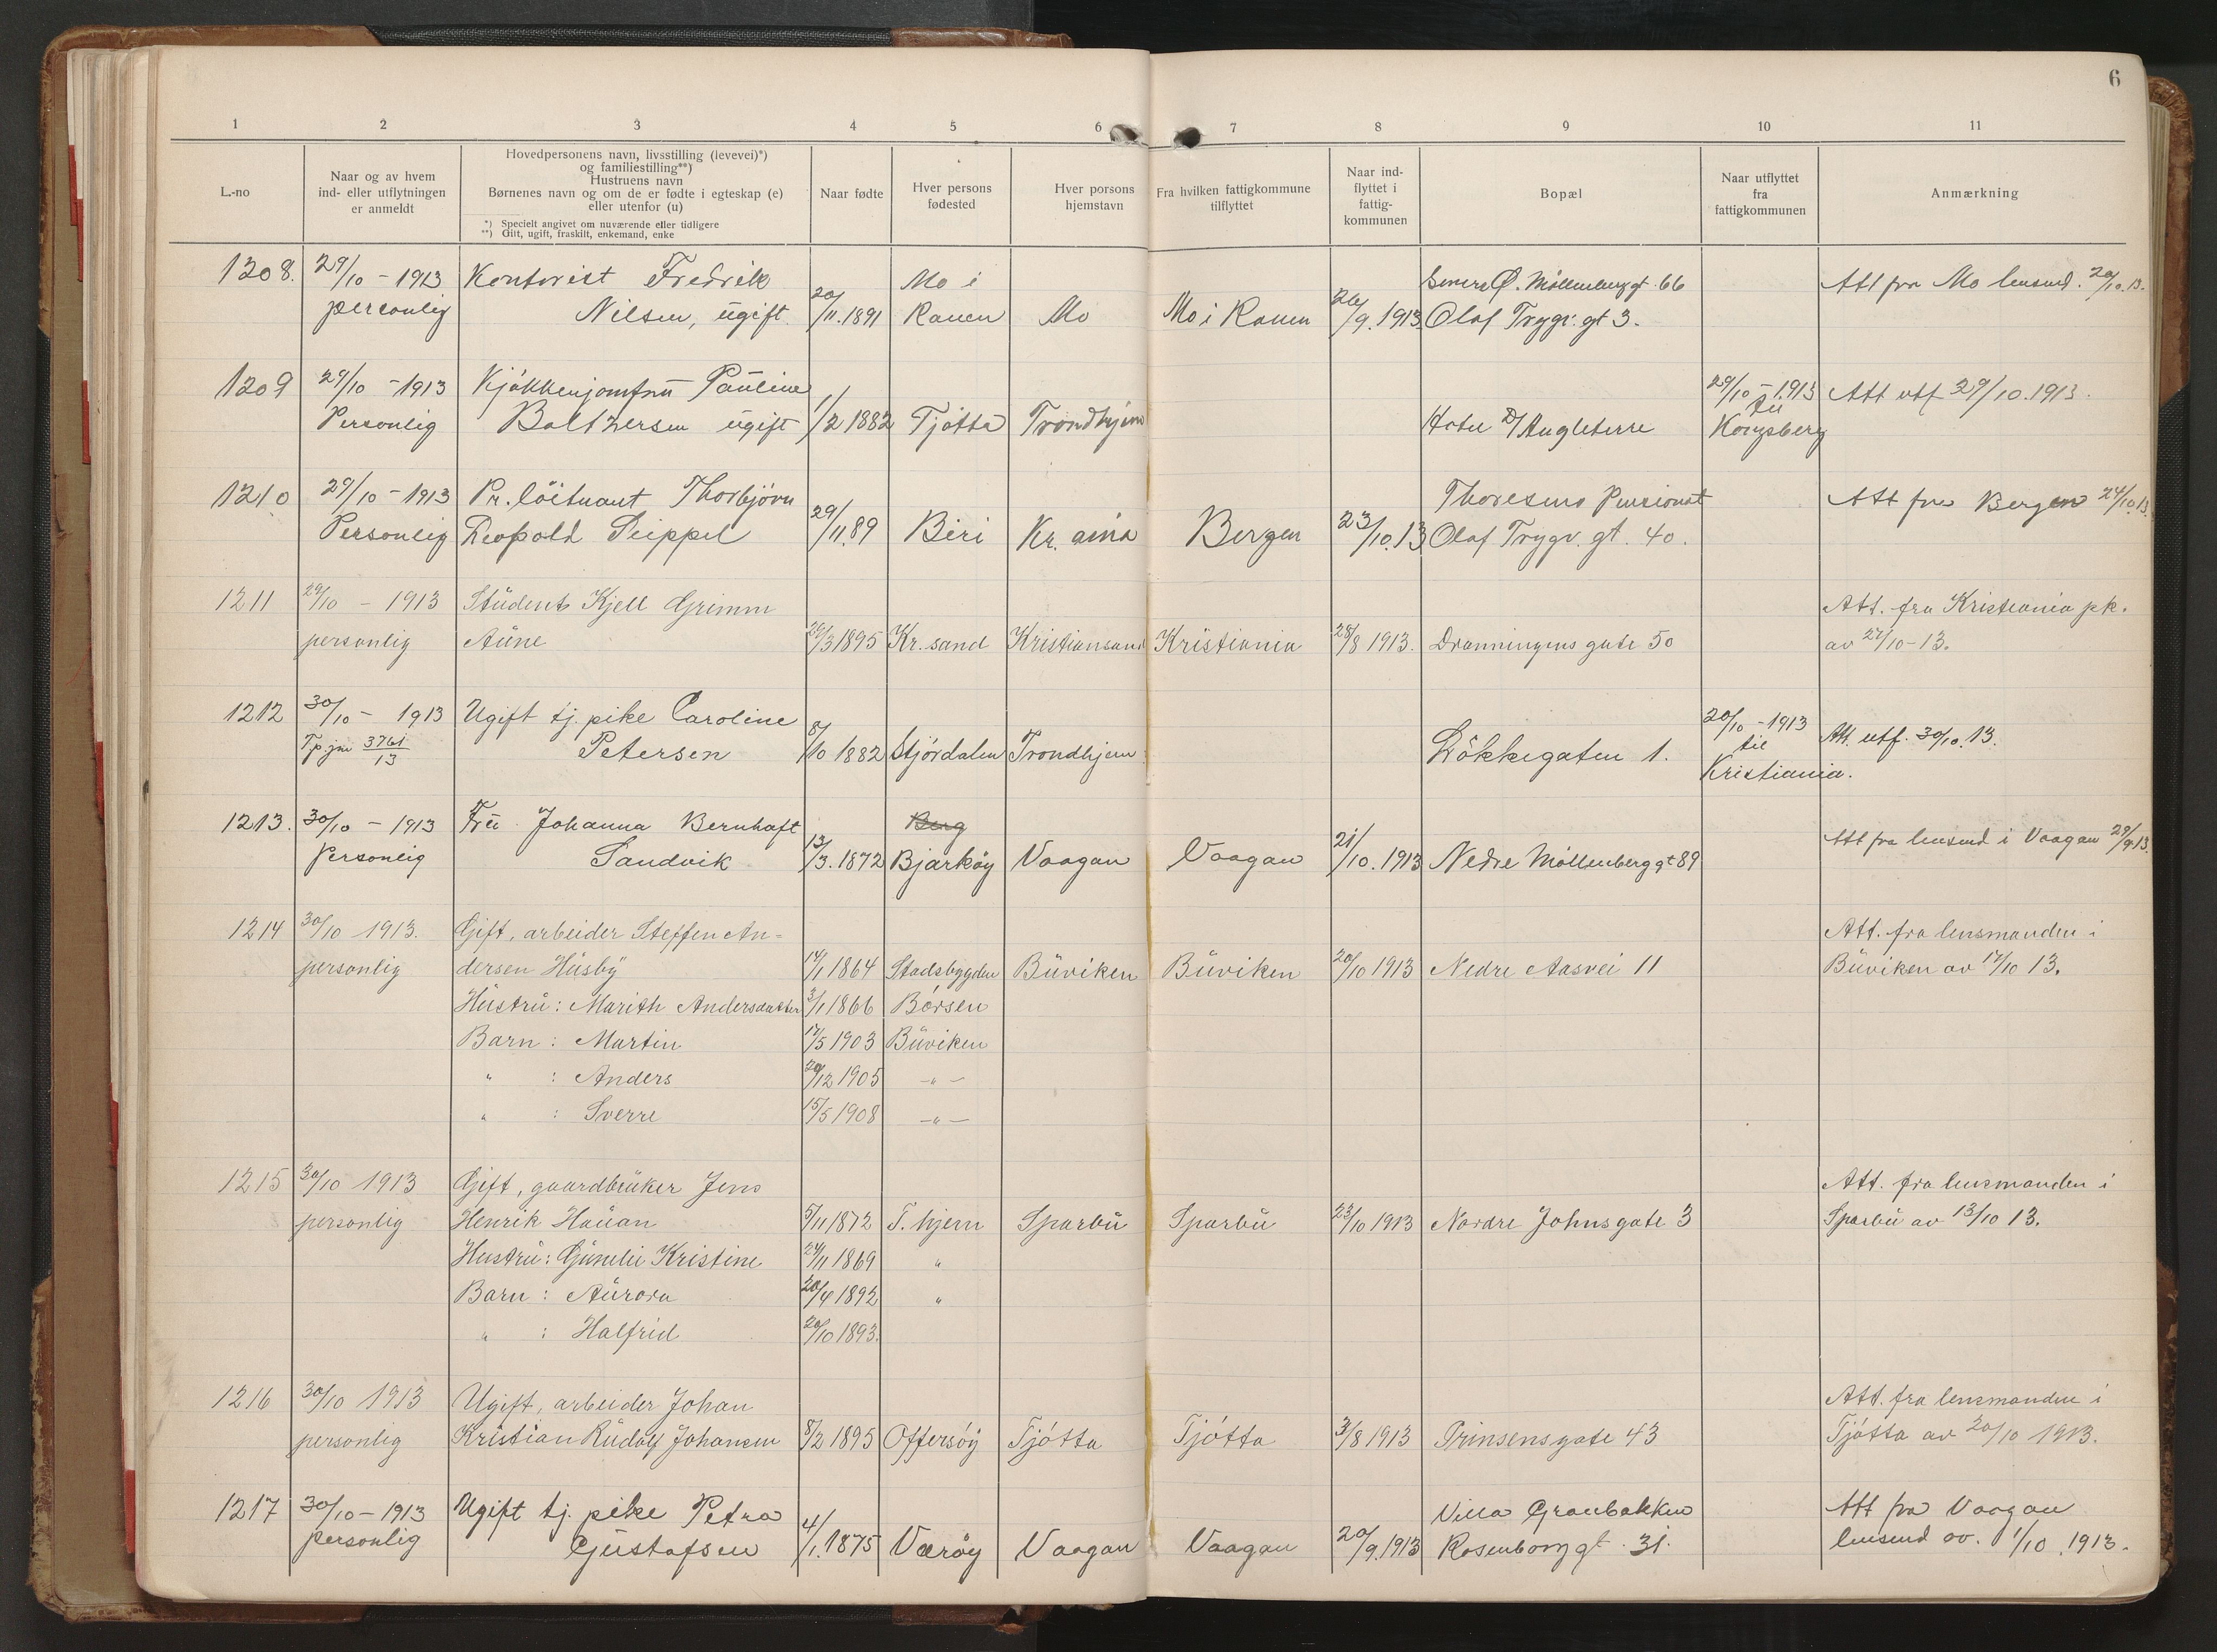 6
1 2 3 4 5 6 7 8 9 10 11
L.-no
Naar og av hvem
ind- eller utflytningen
er anmeldt
Hovedpersonens navn, livsstilling (levevei)*)
og familiestilling**)
Hustruens navn
Børnenes navn og om de er fødte i egteskap (e)
eller utenfor (u)
*) Specielt angivet om nuværende eller tidligere
**) Gift, ugift, fraskilt, enkemand, enke
Naar fødte
Hver persons
fødested
Hver porsons
hjemstavn
Fra hvilken fattigkommune
tilflyttet
Naar ind-
flyttet i
fattig-
kommunen
Bopæl
Naar utflyttet
fra
fattigkommunen
Anmærkning
1208. 29/10 - 1913 Kontorist Fredrik Mo i Ø. Möllenberggt. 66 Att fra Mo lensmd. 20/10.13.
personlig Nilsen, ugift. 20/11.1891 Ranen Mo Mo i Ranen 26/9.1913 Olaf Trygv. gt 3.
1209 29/10 - 1913 Kjökkenjomfru Pauline 29/10 - 1913 Att utf 29/10.1913.
til
Personlig Balthersen ugift 1/2 1882 Tjøtta Trondhjem Hotel D'Angleterre Kongsberg
1210 29/10 - 1913 Pr. löitnant Thorbjörn Thoresens Pensionat Att fra Bergen 24/10.13.
Personlig Leopold Seippel 29/11.89 Biri Kr. ania Bergen 23/10.13 Olaf Trygv. gt. 40.
1211 29/10 - 1913 Student Kjell Grimm Att. fra Kristiania pk.
personlig Aune 29/3 1895 Kr. sand Kristiansand Kristiania 28/8 1913. Dronningens gate 50 av 27/10-13.
1212 30/10 - 1913 Ugift tj. pike Caroline 20/10 - 1913
Tp. jnr 3761/13 Petersen 8/10 1882 Stjördalen Trondhjem Lökkegaten 1. til Att. utf. 30/10.13.
Kristiania.
1213. 30/10 - 1913 Fru Johanna Bernhoft Berg Att fra lensmd i Vaagan 29/9.13.
Personlig Sandvik 13/3.1872 Bjarköy Vaagan Vaagan 21/10.1913 Nedre Möllenberggt 89
1214 30/10 1913. Gift, arbeider Steffen An= Att. fra lensmanden i
personlig dersen Husby 14/1 1864 Stadsbygden Buviken Buviken 20/10 1913 Nedre Aasvei 11 Buviken av 17/10 13.
Hustru: Marith Andersdatter 3/1 1866 Börsen
Barn: Martin 17/5 1903 Buviken
" : Anders 20/12 1905 -"-
" : Sverre 15/5 1908 -"-
1215 30/10 1913 Gift, gaardbruker Jens Att. fra lensmanden i
personlig Henrik Hauan 5/11 1872 T. hjem Sparbu Sparbu 23/10 1913 Nordre Johnsgate 3 Sparbu av 13/10 13.
Hustru: Kristine 24/11 1869 "
Barn: Aurora 20/4 1892 "
" : Halfrid 20/10 1893.
1216 30/10 1913 Ugift, arbeider Johan Att. fra lensmanden i
personlig Kristian Rudolf Johansen 8/2 1895 Offersöy Tjötta Tjötta 3/8 1913 Prinsensgate 43 Tjötta av 20/10 1913.
1217 30/10 - 1913 Ugift tj. pike Petra Villa Granbakken Att fra Vaagan
personlig Gustafsen 4/1.1875 Værøy Vaagan Vaagan 20/9.1913 Rosenborg gt. 31. lensmd av. 1/10.1913.